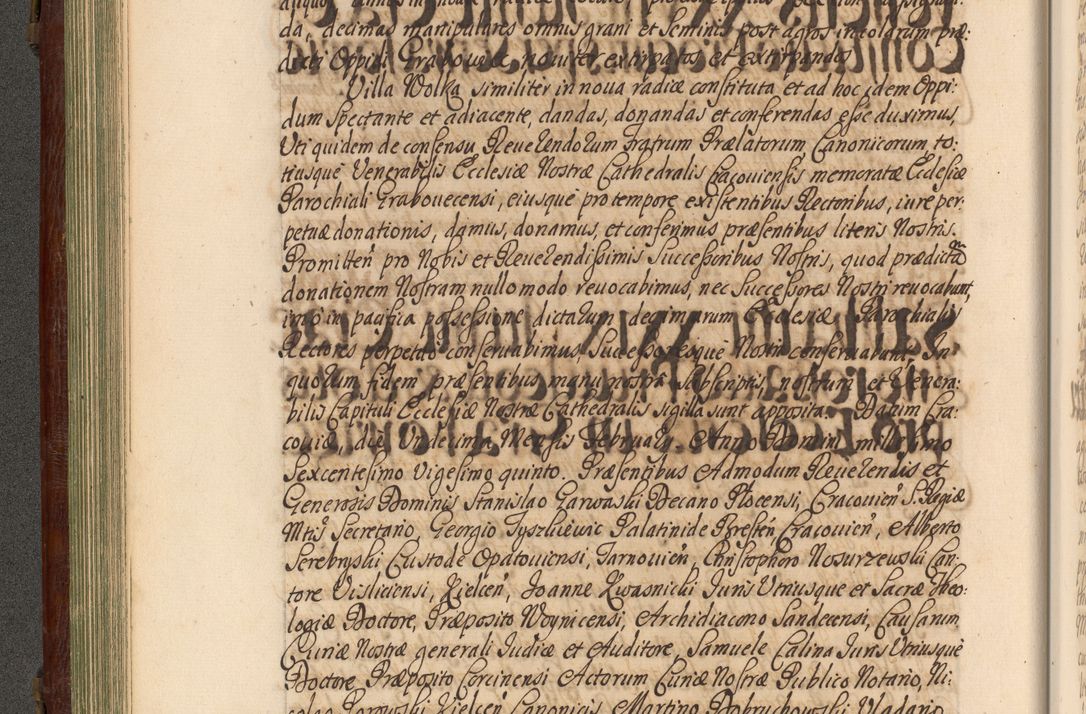 da, decimas manipulares omnis grani et Seminis post agros incolarum præ:
dicti Oppidi Grabouec nouiter extirpatos et extirpandos
Villa Wolka similiter in noua radice constituta, et ad hoc idem Oppi:
dum spectante et adiacente, dandas, donandas et conferendas esse duximus,
Uti quidem de consensu Reuerendorum Fratrum Prælatorum, Canonicorum, to:
tiusque Venerabilis Ecclesiæ Nostræ Cathedralis Cracouiensis memoratæ Ecclesiæ
Parochiali Grabouecensi, eiusque pro tempore existentibus Rectoribus, iure per:
petuæ donationis, damus, donamus, et conferimus præsentibus literis Nostris.
Promitten pro Nobis et Reuerendissimis Successoribus Nostris, quod prædictam
donationem Nostram nullo modo reuocabimus, nec Successores Nostri reuocabunt,
imo in pacifica possessione dictarum decimarum Ecclesiæ Parochialis
Rectores perpetuo conseruabimus, Successoresque Nostri conseruabunt. In
quorum fidem præsentibus manu nostra subscriptis, nostrum et Venera:
bilis Capituli Ecclesiæ Nostræ Cathedralis sigilla sunt apposita. Datum Cra:
couiæ, die Undecima Mensis Februarij. Anno Domini millesimo
Sexcentesimo Vigesimo quinto. Præsentibus Admodum Reuerendis et
Generosis Dominis Stanislao Garwaski Decano Plocensi, Cracouien S. Regiæ
Mtis Secretario, Georgio Tyszkiewic Palatinide Bresten, Cracouien, Alberto
Serebryski Custode Opatouiensi, Tarnouien, Christophoro Nosurzewski Can:
tore Visliciensi, Kielcen, Joanne Kwasnicki Juris Utriusque et Sacræ Theo:
logiæ Doctore, Præposito Woynicensi, Archidiacono Sandecensi, Causarum
Curiæ Nostræ generali Judice et Auditore, Samuele Calina Juris Utriusque
Doctore, Præposito Corcinensi Actorum Curiæ Nostræ Publico Notario, Ni:
colao Kielcen Canonicis, Martino Dobruchowski Vladano